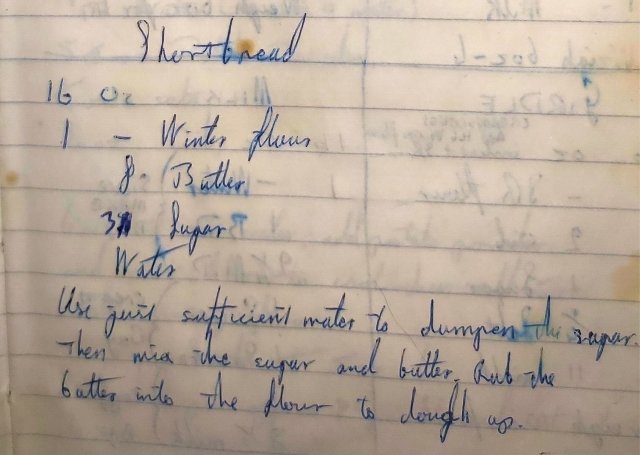 Shortbread
lb o
1 - Winter flour
8 Butter
3 Sugar
Water
Use just sufficient water to dampen the sugar.
Then mix the sugar and butter. Rub the
butter into the flour to dough up.